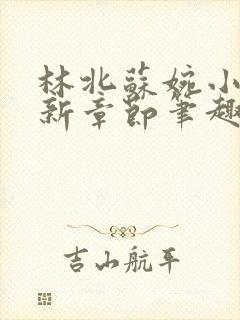 林北蘇婉小
新章節筆趣
吉山航平